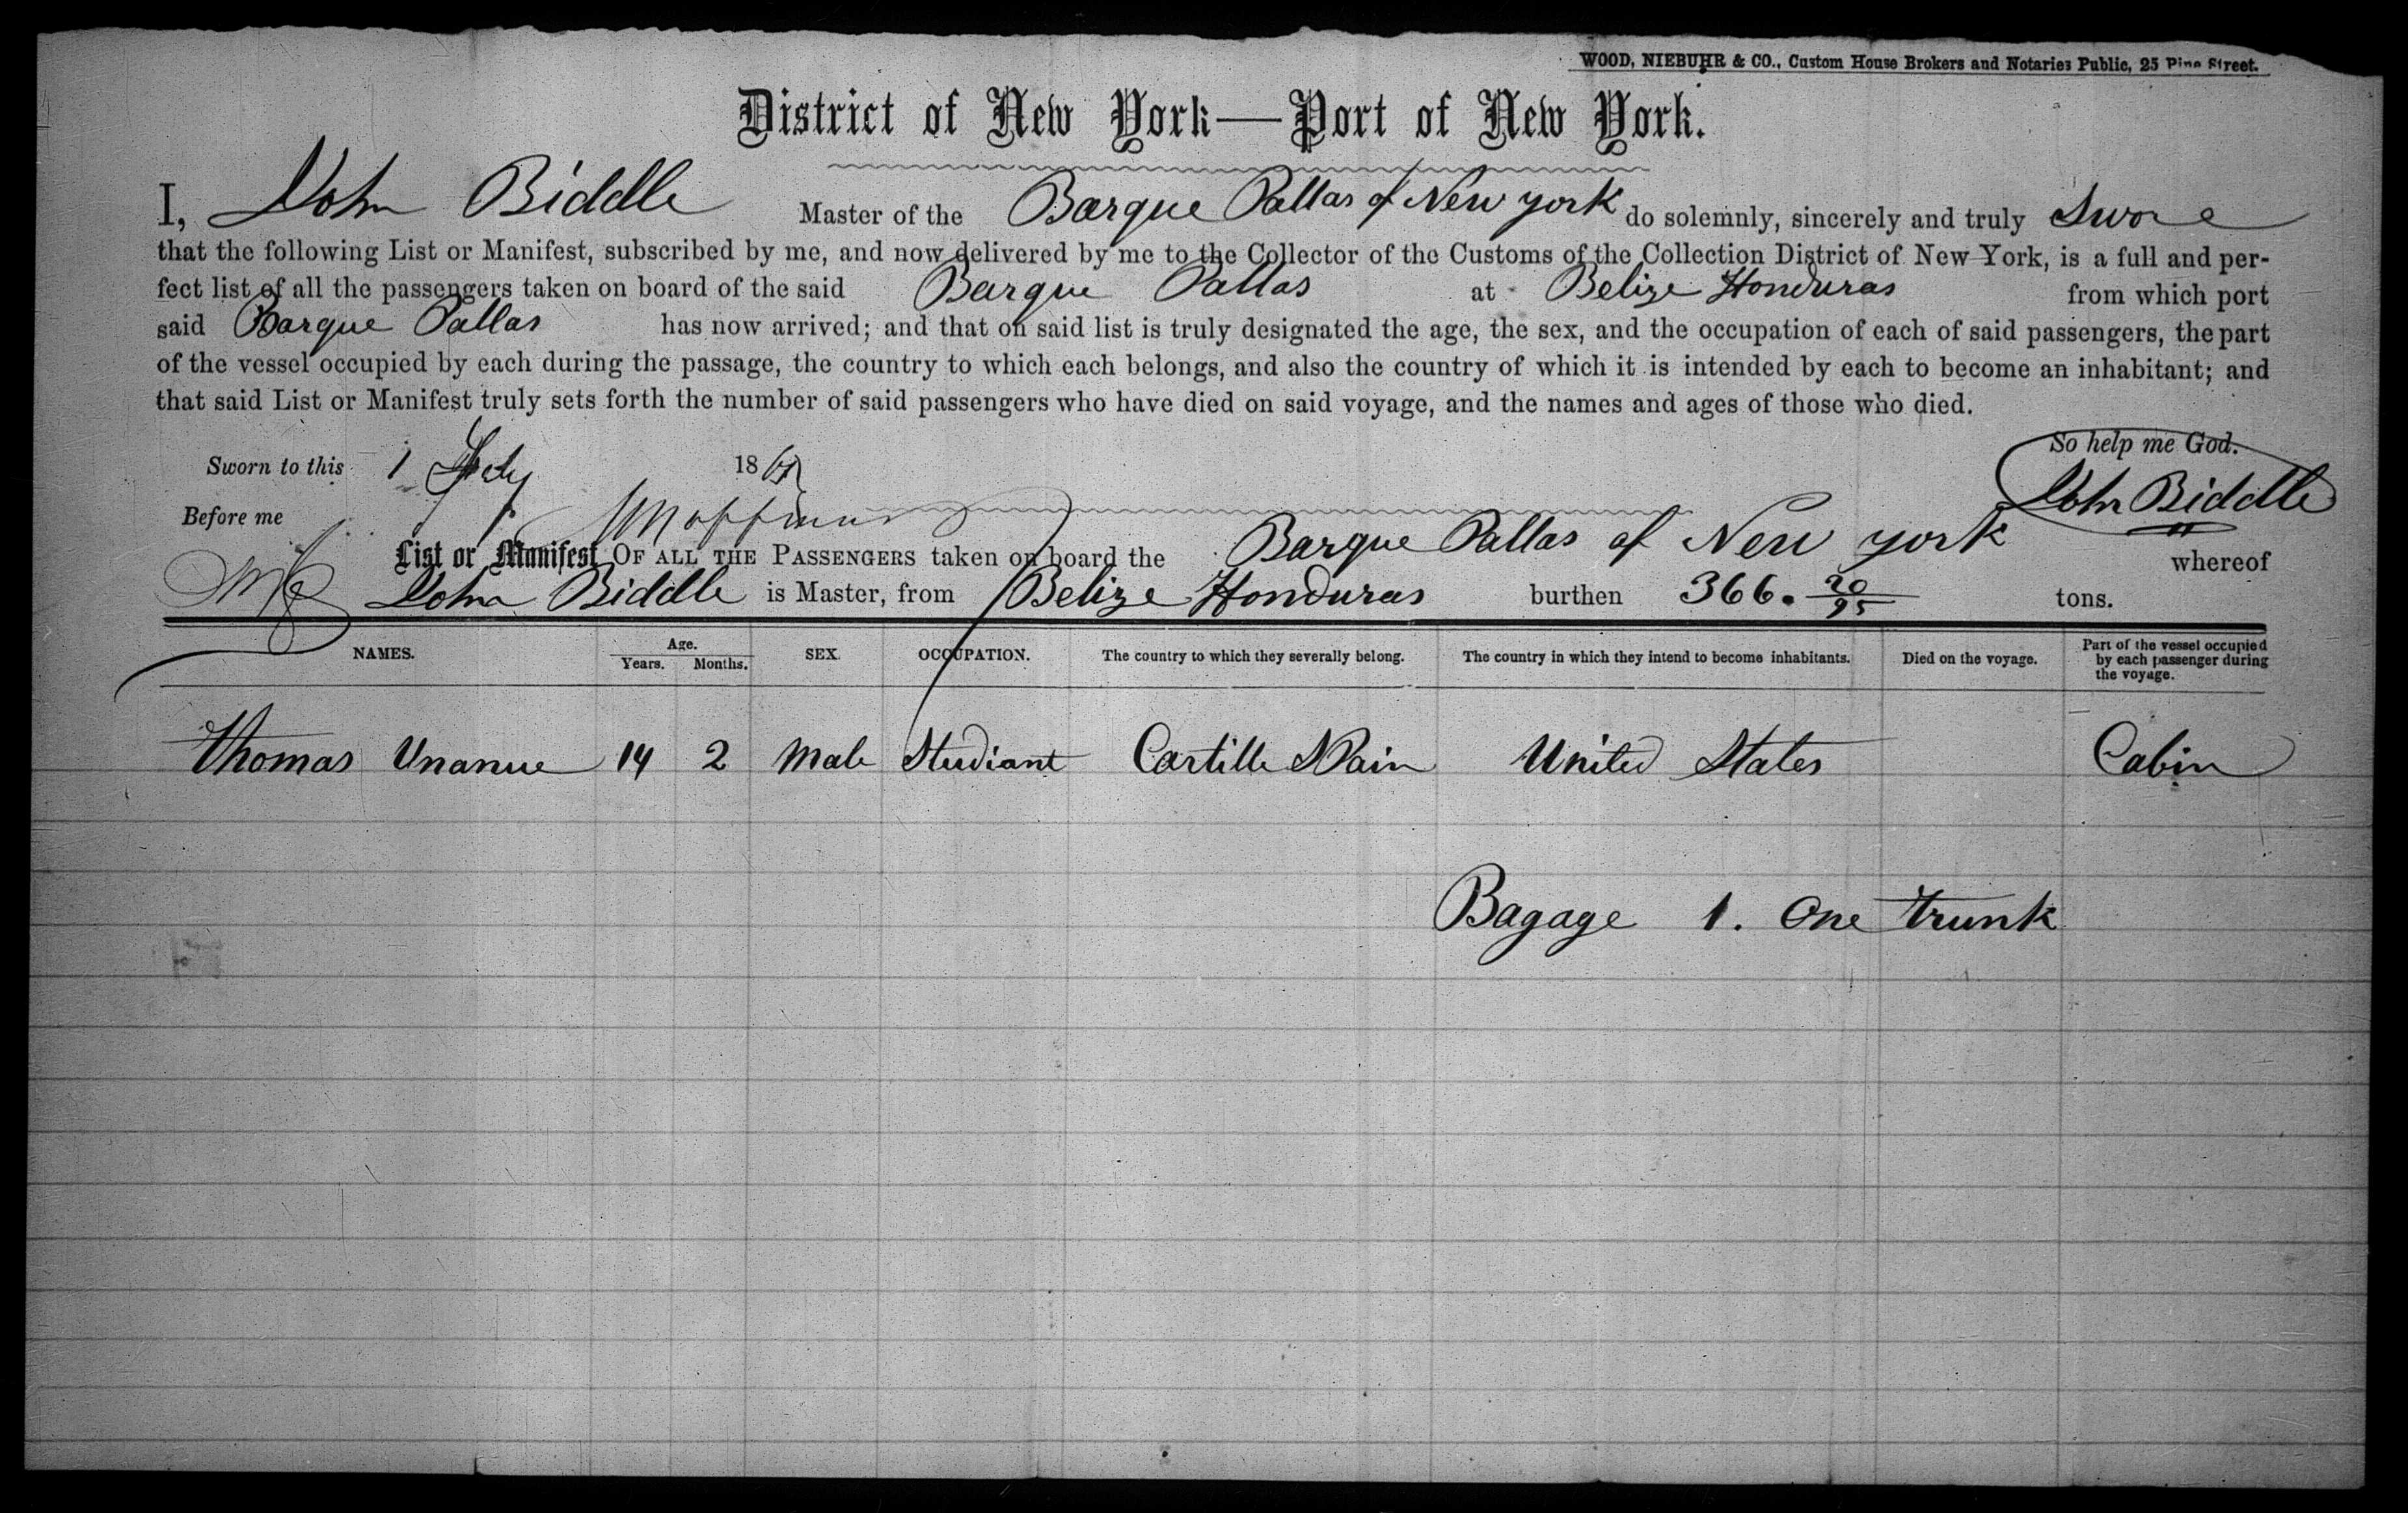 WOOD, NIEBUHR & CO., Custom House Brokers and Notaries Public, 25 Pine Street.
District of New York—Port of New York.
I, John Biddle Master of the Barque Pallas of New york do solemnly, sincerely and truly Swore
that the following List or Manifest, subscribed by me, and now delivered by me to the Collector of the Customs of the Collection District of New York, is a full and per-
fect list of all the passengers taken on board of the said Barque Pallas at Belize Honduras from which port
said Barque Pallas has now arrived; and that on said list is truly designated the age, the sex, and the occupation of each of said passengers, the part
of the vessel occupied by each during the passage, the country to which each belongs, and also the country of which it is intended by each to become an inhabitant; and
that said List or Manifest truly sets forth the number of said passengers who have died on said voyage, and the names and ages of those who died.
So help me God.
Sworn to this 1 18
John Biddle
Before me
List or Manifest OF ALL THE PASSENGERS taken on board the Barque Pallas of New york whereof
John Biddle is Master, from Belize Honduras burthen 366. 20/95 tons.
NAMES. Age. Years. Months. SEX. OCCUPATION. The country to which they severally belong. The country in which they intend to become inhabitants. Died on the voyage. Part of the vessel occupied by each passenger during the voyage.
Thomas Unanue 14 2 Male Studiant Cartille SPain United States Cabin
Bagage 1. One trunk